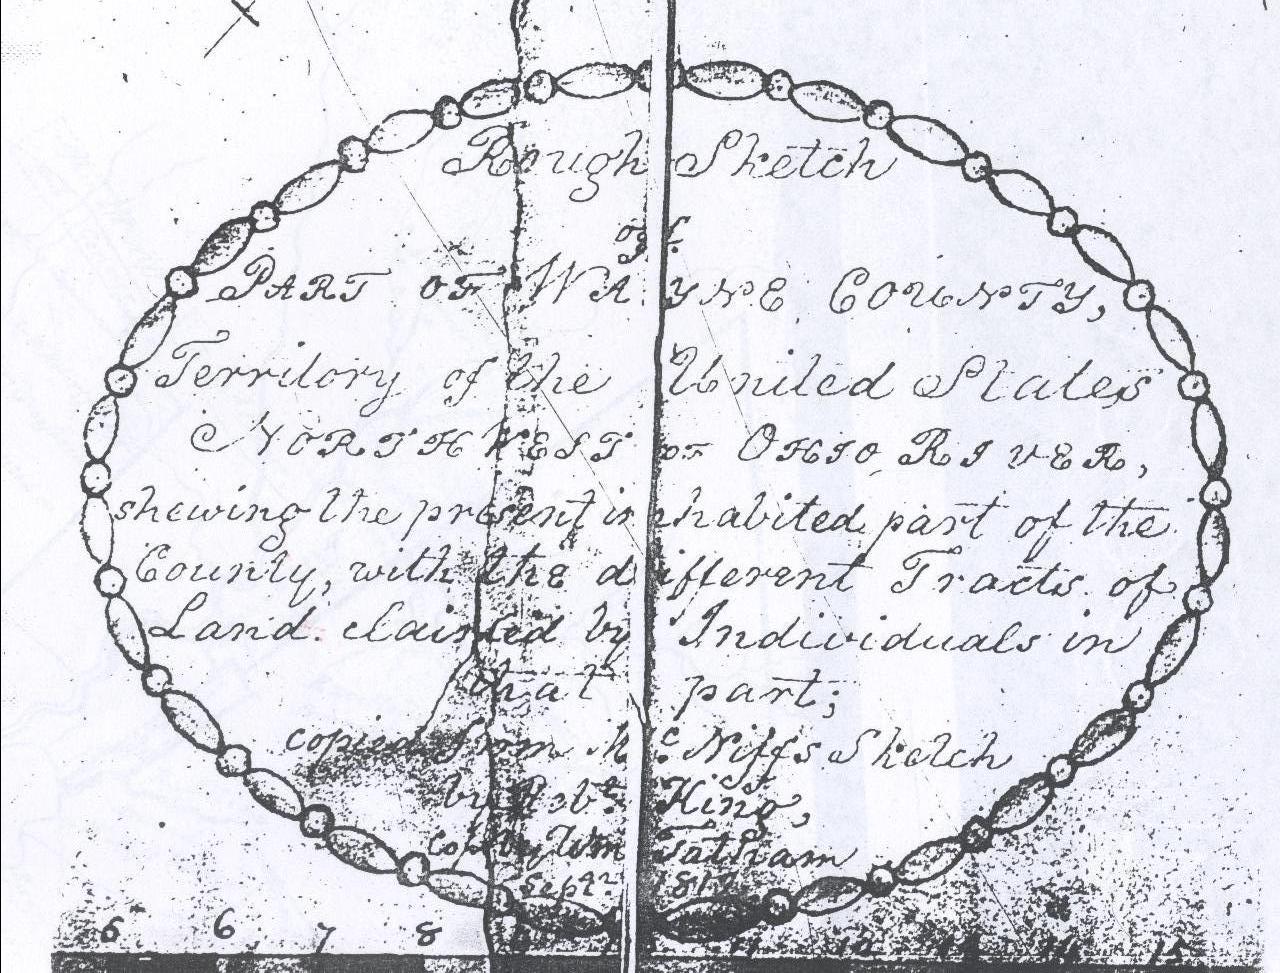 Rough Sketch
of
PART OF WAYNE COUNTY,
Territory of the United States
NORTHWEST OF OHIO RIVER,
shewing the present inhabited part of the
County, with the different Tracts of
Land claimed by Individuals in
that part;
copied from Mc Niffs Sketch
by Robt. King,
by Wm Tatham
Septr
5 6 7 8 11 12 13 14 15